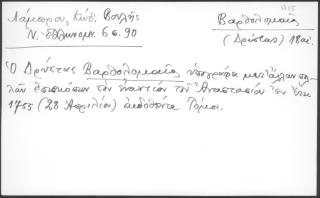 Λάμπρου, Κώδ. Βουλῆς
Ν. Ἑλληνομ. 6 σ. 90
Βαρθολομαῖος
(Δρύστας) 18 αἰ.
Ὁ Δρύστας Βαρθολομαῖος ὑπογράφει μετ' ἄλλων πολ-
λῶν ἐπισκόπων τὸν ἐναντίον τοῦ Ἀναστασίου ἐν ἔτει
1755 (28 Ἀπριλίου) ἐκδοθέντα Τόμον.